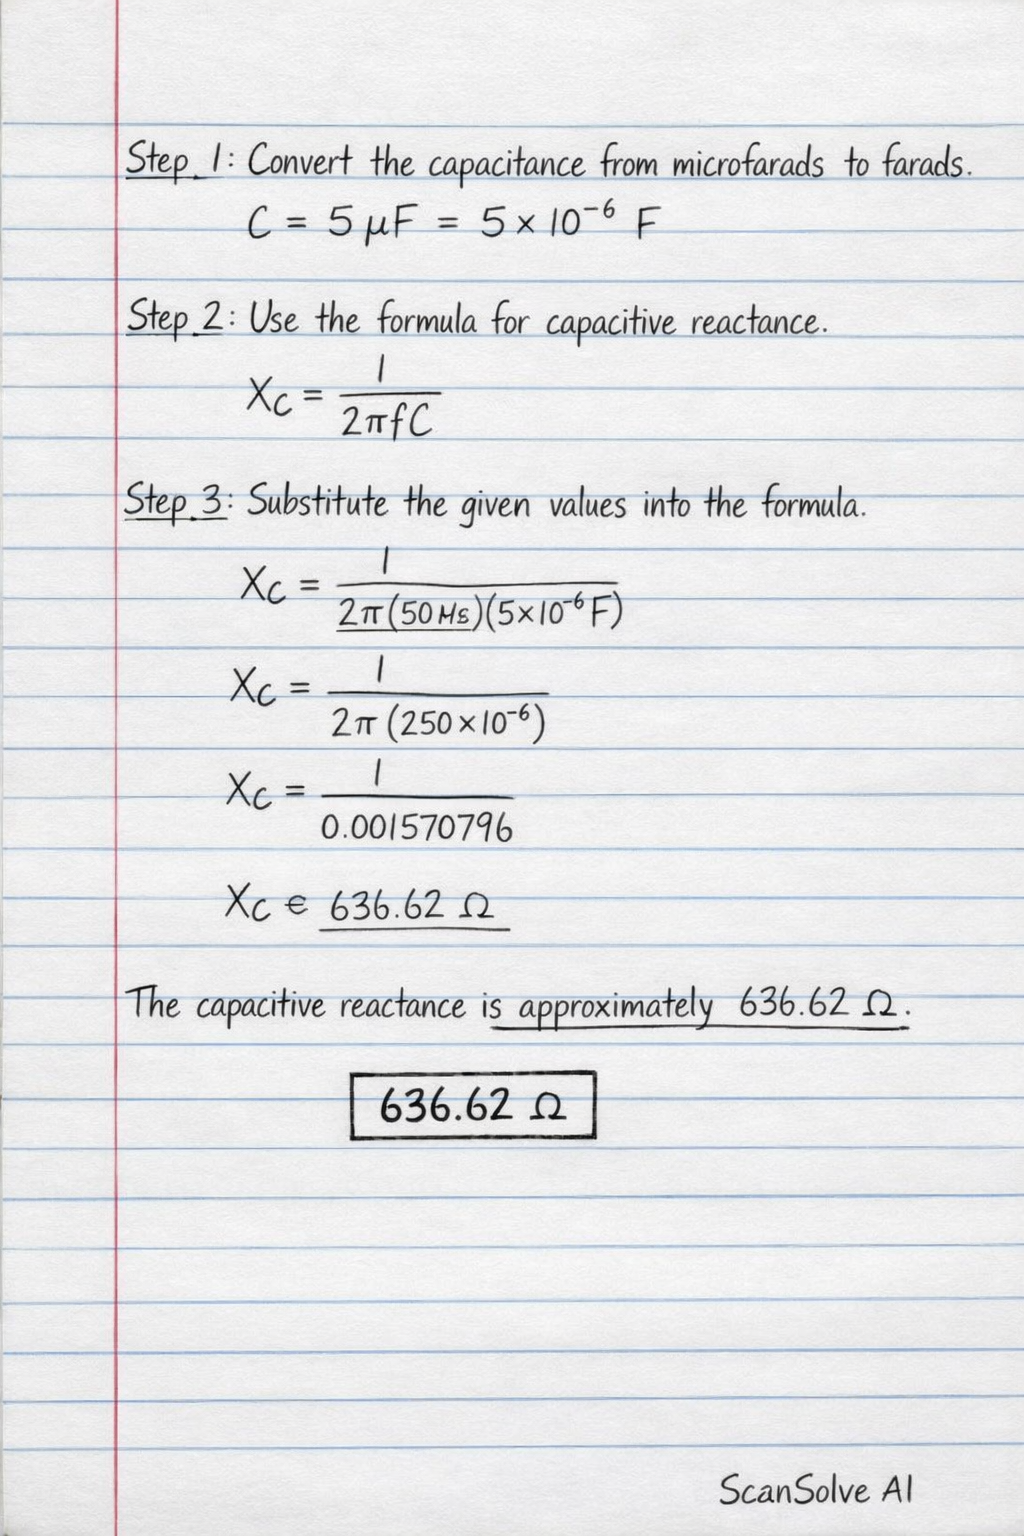 Step 1: Convert the capacitance from microfarads to farads.
C = 5 μF = 5 × 10⁻⁶ F
Step 2: Use the formula for capacitive reactance.
X_C = 1 / 2πfC
Step 3: Substitute the given values into the formula.
X_C = 1 / 2π(50 Hs)(5×10⁻⁶ F)
X_C = 1 / 2π (250 × 10⁻⁶)
X_C = 1 / 0.001570796
X_C € 636.62 Ω
The capacitive reactance is approximately 636.62 Ω.
636.62 Ω
ScanSolve AI